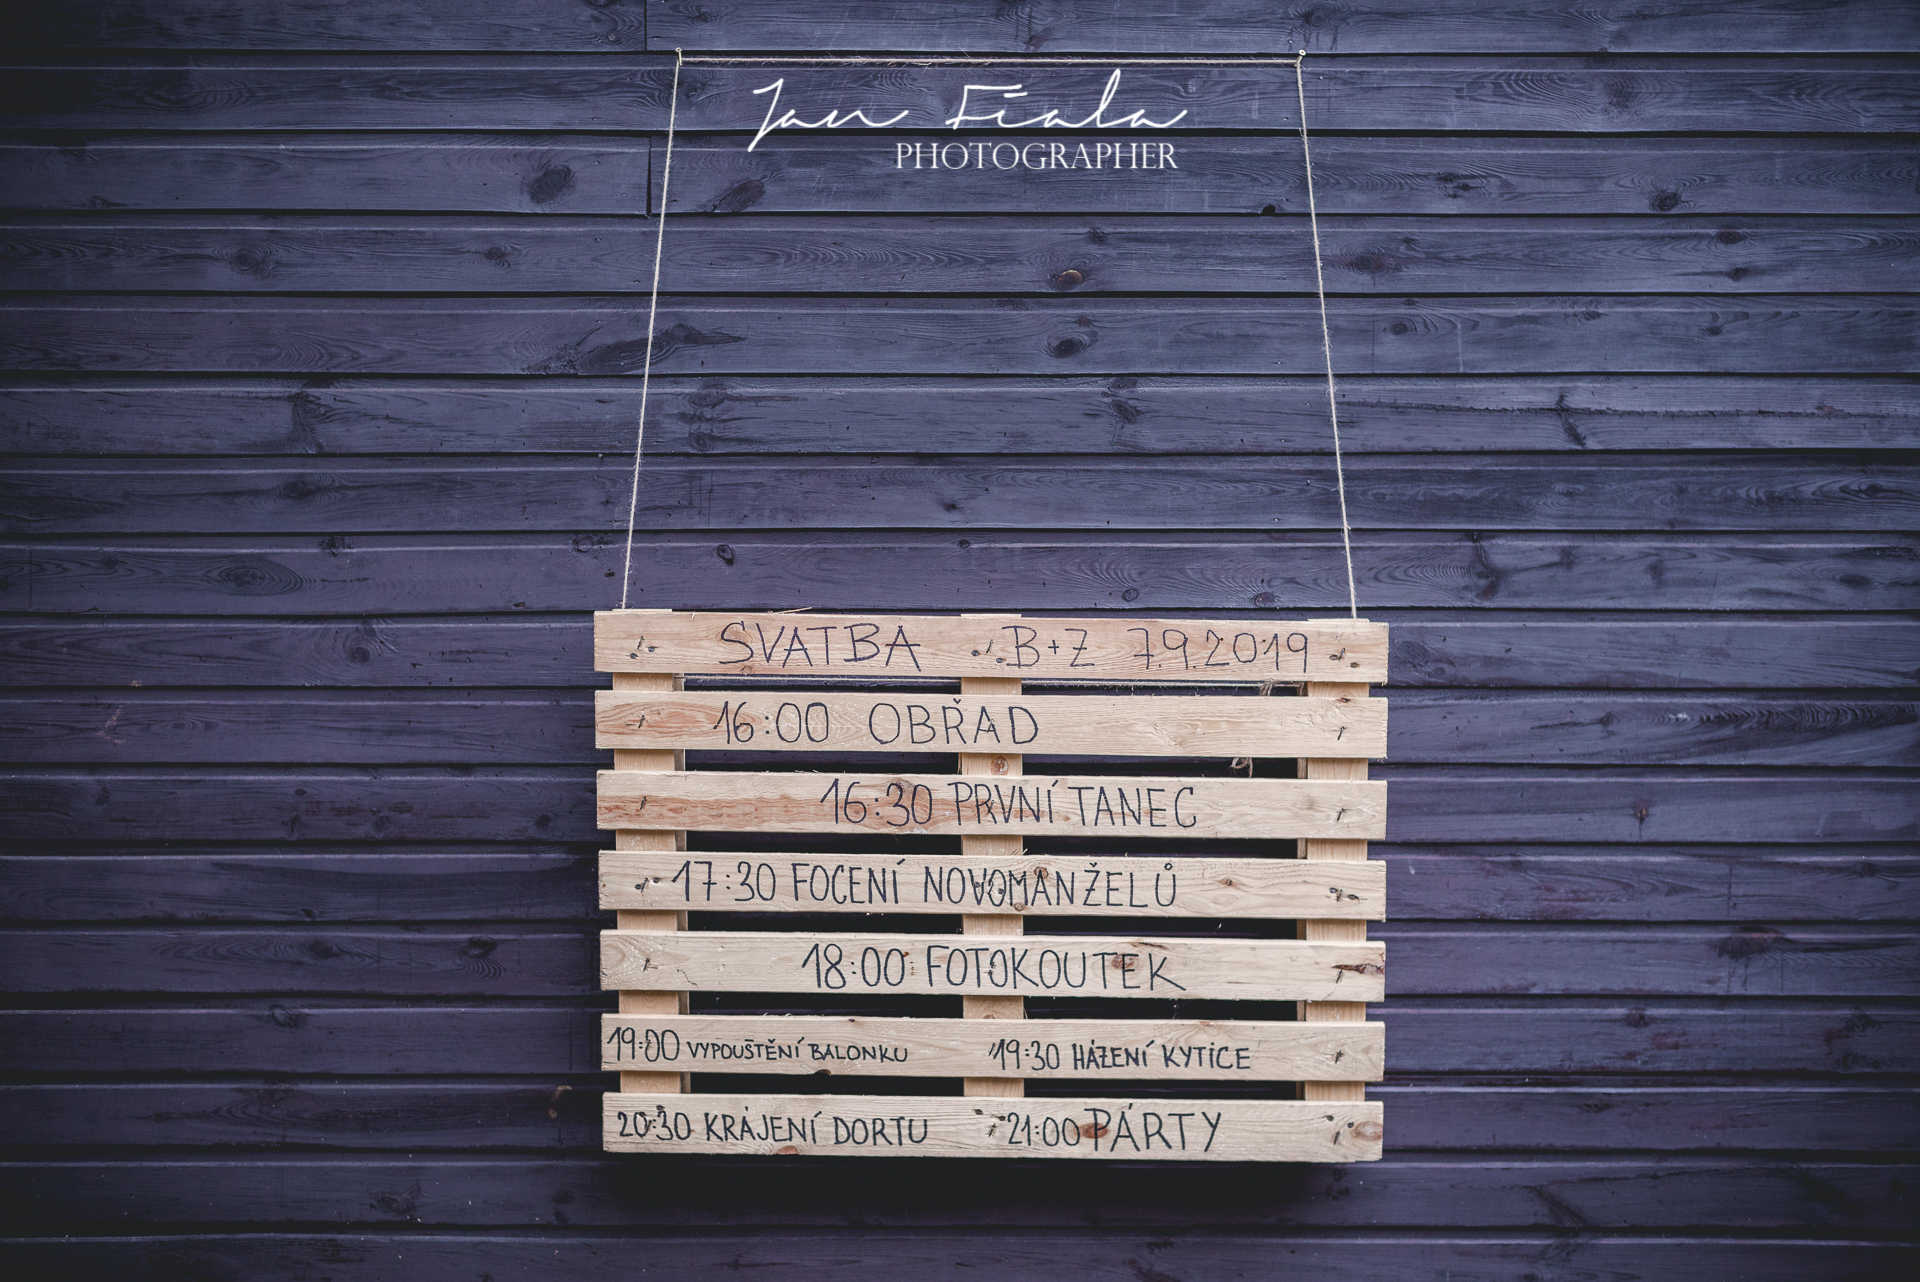 Jan Fiala
PHOTOGRAPHER
SVATBA B+Z 7.9.2019
16:00 OBŘAD
16:30 PRVNÍ TANEC
17:30 FOCENÍ NOVOMANŽELŮ
18:00 FOTOKOUTEK
19:00 VYPOUŠTĚNÍ BALONKU 19:30 HÁZENÍ KYTICE
20:30 KRÁJENÍ DORTU 21:00 PÁRTY